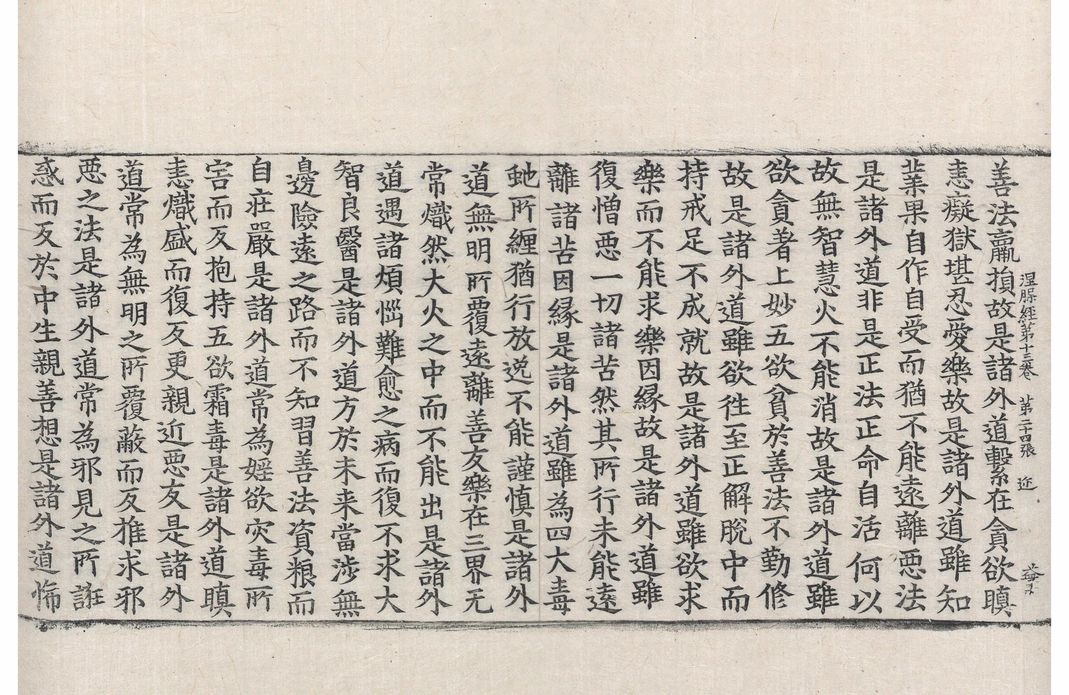 善法羸損故是諸外道繫在貪欲瞋
涅槃經第十三卷 第二十四張 近
恚癡獄堪忍愛樂故是諸外道雖知
業果自作自受而猶不能遠離惡法
是諸外道非是正法正命自活何以
故無智慧火不能消故是諸外道雖
欲貪著上妙五欲貧於善法不勤修
故是諸外道雖欲往至正解脫中而
持戒足不成就故是諸外道雖欲求
樂而不能求樂因緣故是諸外道雖
復憎惡一切諸苦然其所行未能遠
離諸苦因緣是諸外道雖為四大毒
虵所纏猶行放逸不能謹慎是諸外
道無明所覆遠離善友樂在三界无
常熾然大火之中而不能出是諸外
道遇諸煩惱難愈之病而復不求大
智良醫是諸外道方於未來當涉無
邊險遠之路而不知習善法資粮而
自莊嚴是諸外道常為婬欲灾毒所
害而反抱持五欲霜毒是諸外道瞋
恚熾盛而復反更親近惡友是諸外
道常為無明之所覆蔽而反推求邪
惡之法是諸外道常為邪見之所誑
惑而反於中生親善想是諸外道悕